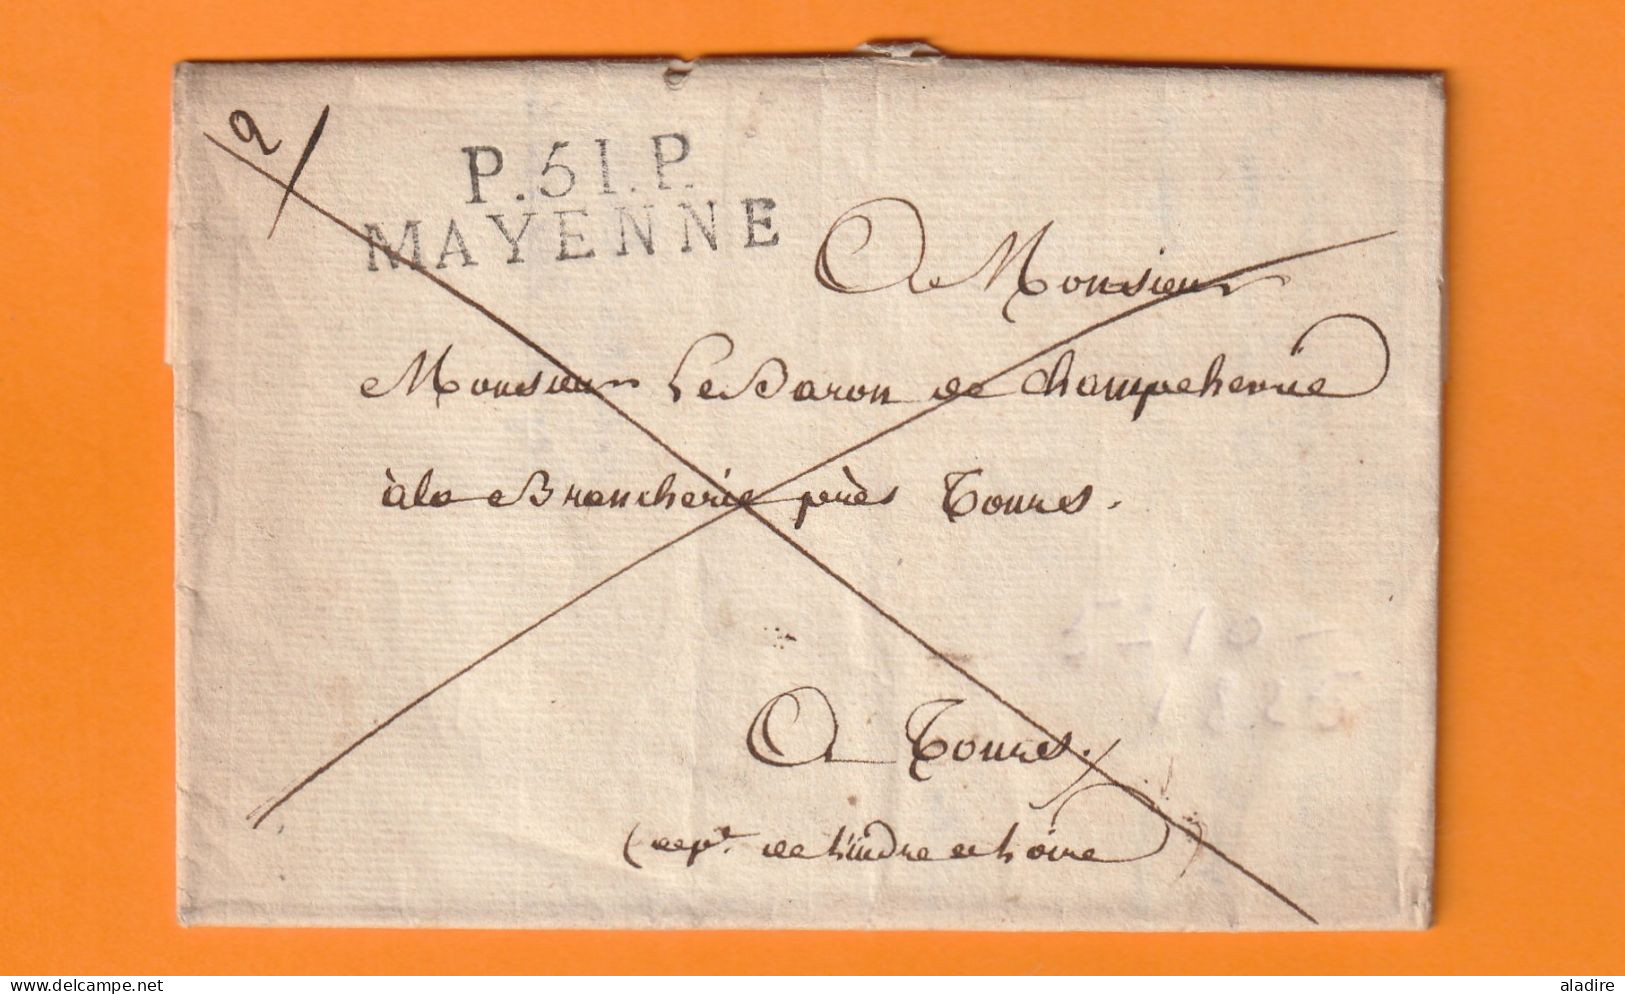 2
P.51.P.
MAYENNE
A Monsieur
Monsieur Le Baron de Champchevrie
à la Brancherie près Tours.
A Tours
(dept. de l'indre et Loire)
aladire